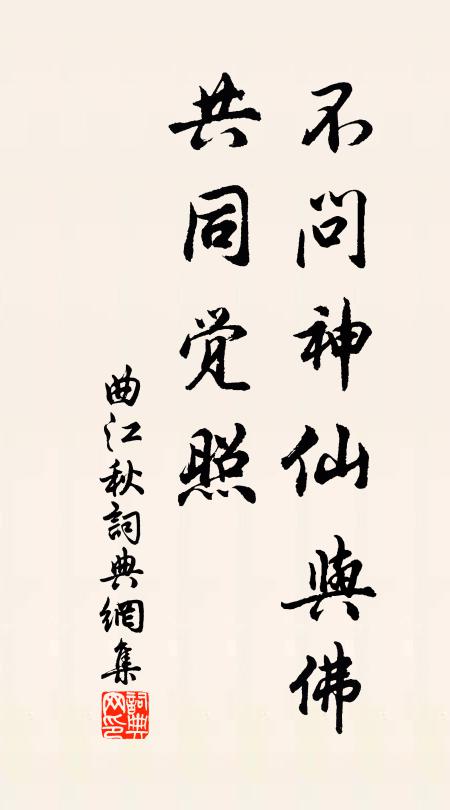 不问神仙與佛
共同觉照
曲江秋詞典網集
詞典
网印